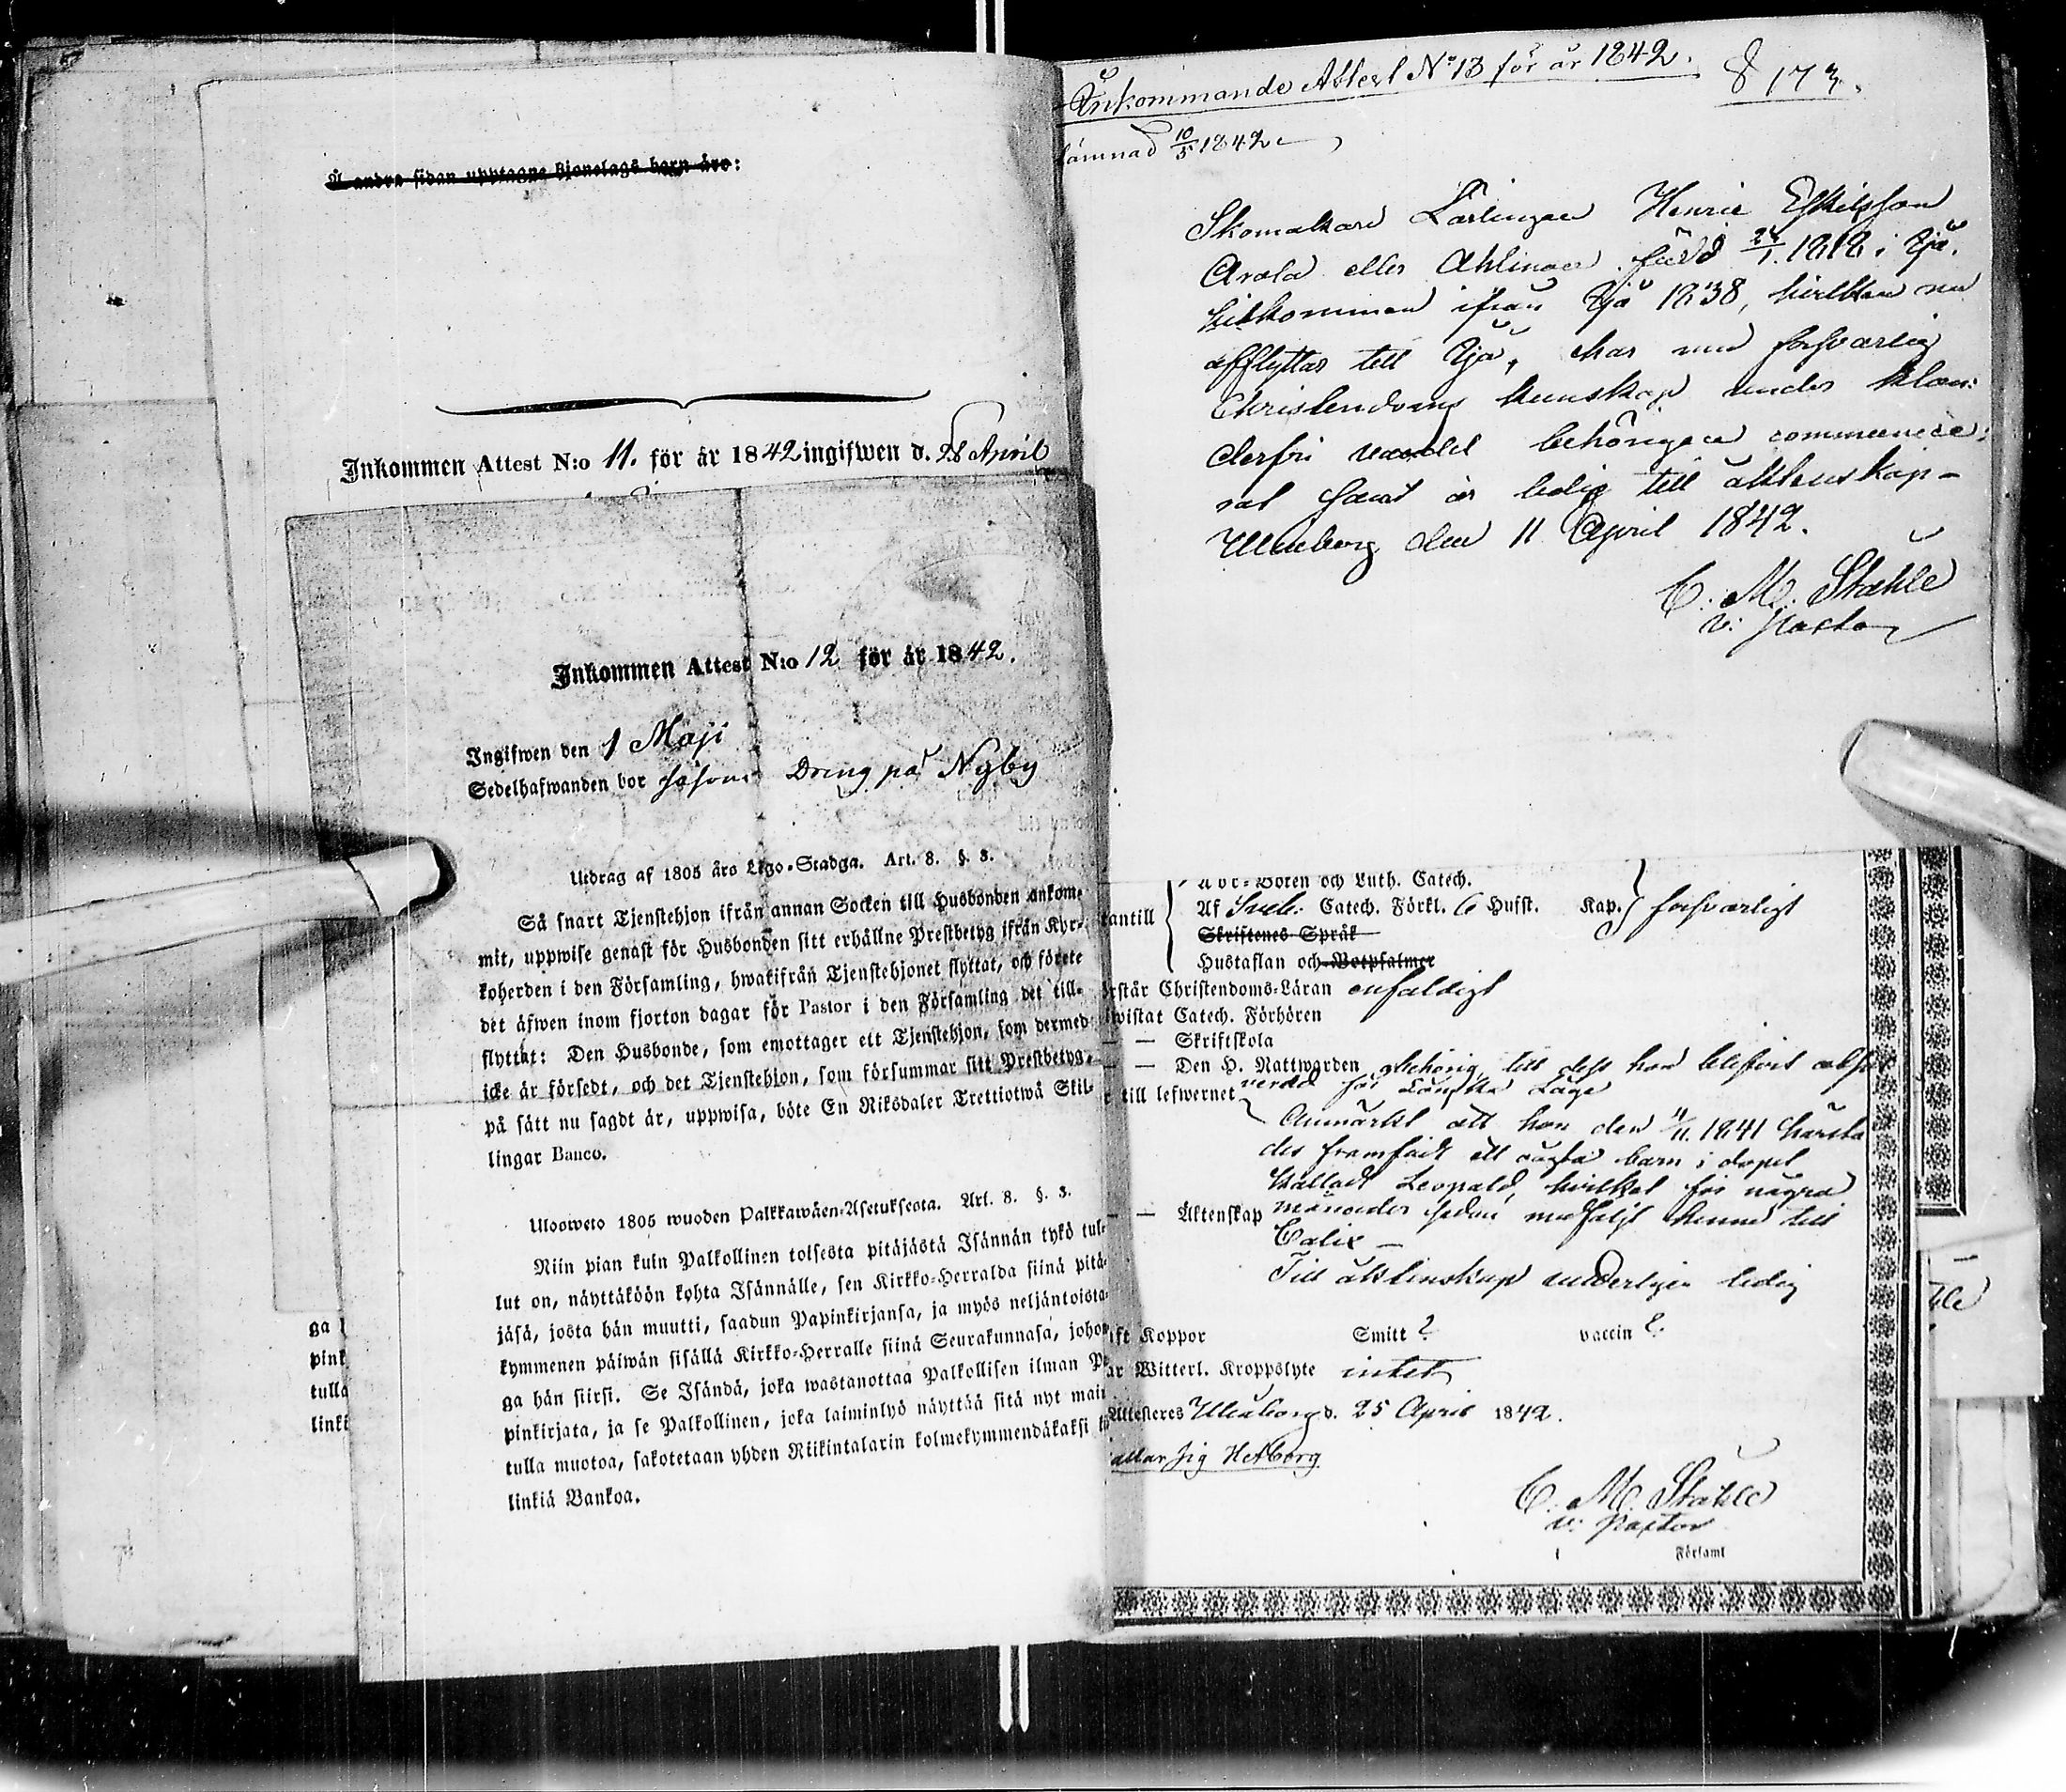 Å andra sidan upptagne Hjonelags barn äro:
Inkommen Attest N:o 11. för år 1842 ingifwen d. 28 April
Inkommen Attest N:o 12 för år 1842.
Ingifwen den 1 Maji
Sedelhafwanden bor såsom Dreng på Nyby
Utdrag af 1805 års Lego-Stadga. Art. 8. §. 3.
Så snart Tjenstehjon ifrån annan Socken till Husbonden ankom-
mit, uppwise genast för Husbonden sitt erhållne Prestbetyg ifrån Kyr-
koherden i den Församling, hwarifrån Tjenstehjonet flyttat, och förete
det äfwen inom fjorton dagar för Pastor i den Församling det till-
flyttat: Den Husbonde, som emottager ett Tjenstehjon, som dermed
icke är försedt, och det Tjenstehjon, som försummar sitt Prestbetyg,
på sätt nu sagdt är, uppwisa, böte En Riksdaler Trettiotwå Skil-
lingar Banco.
Ulosweto 1805 wuoden Palkkawäen-Asetuksesta. Art. 8. §. 3.
Niin pian kuin Palkollinen toisesta pitäjästä Isännän tykö tul-
lut on, näyttäköön kohta Isännälle, sen Kirkko-Herralda siinä pitä-
jäsä, josta hän muutti, saadun Papinkirjansa, ja myös neljäntoista-
kymmenen päiwän sisällä Kirkko-Herralle siinä Seurakunnasa, johon-
ga hän siirsi. Se Isändä, joka wastanottaa Palkollisen ilman Pa
pinkirjata, ja se Palkollinen, joka laiminlyö näyttää sitä nyt main
tulla muotoa, sakotetaan yhden Riikintalarin kolmekymmendäkaksi
linkiä Bankoa.
ga
pink
tulla
linki
Inkommande Attest No 13 för år 1842. 8 173.
lämnad 10/5 1842
Skomakare Lärlingen Henric Eskilsson
Arola eller Ahlinger född 24/1. 1818 i Ijo,
hitkommen ifrån Ijo 1838, hvilken nu
afflyttar till Ijo, har med försvarlig
Christendoms kunskap under klan-
derfri vandel behörigen communice-
rat samt är ledig till äktenskap -
Uleåborg den 11 April 1842.
C. M. Ståhle
v: Pastor
A b c-Boken och Luth. Catech.
antill Af Sveb. Catech. Förkl. 6 Hufst. Kap. försvarligt
Skriftenes Språk
Hustaflan och Botpsalmer
rstår Christendoms-Läran enfaldigt
wistat Catech. Förhören
— Skriftskola
— — Den H. Nattwarden behörig till dess hon blifvit
till lefwernet
Anmärkt att hon den 4/11. 1841 härsta
des framfödt ett oägta barn i dopet
kalladt Leopold, hvilket för några
— — Äktenskap månader sedan medföljt henne till
Calix —
Till äktenskap ledig
ift Koppor Smitt ? vaccin ?
ar Witterl. Kroppslyte intet
Attesteres Uleåborg d. 25 April 1842.
allar sig Hetborg
C. M. Ståhle
v: Pastor
Församl